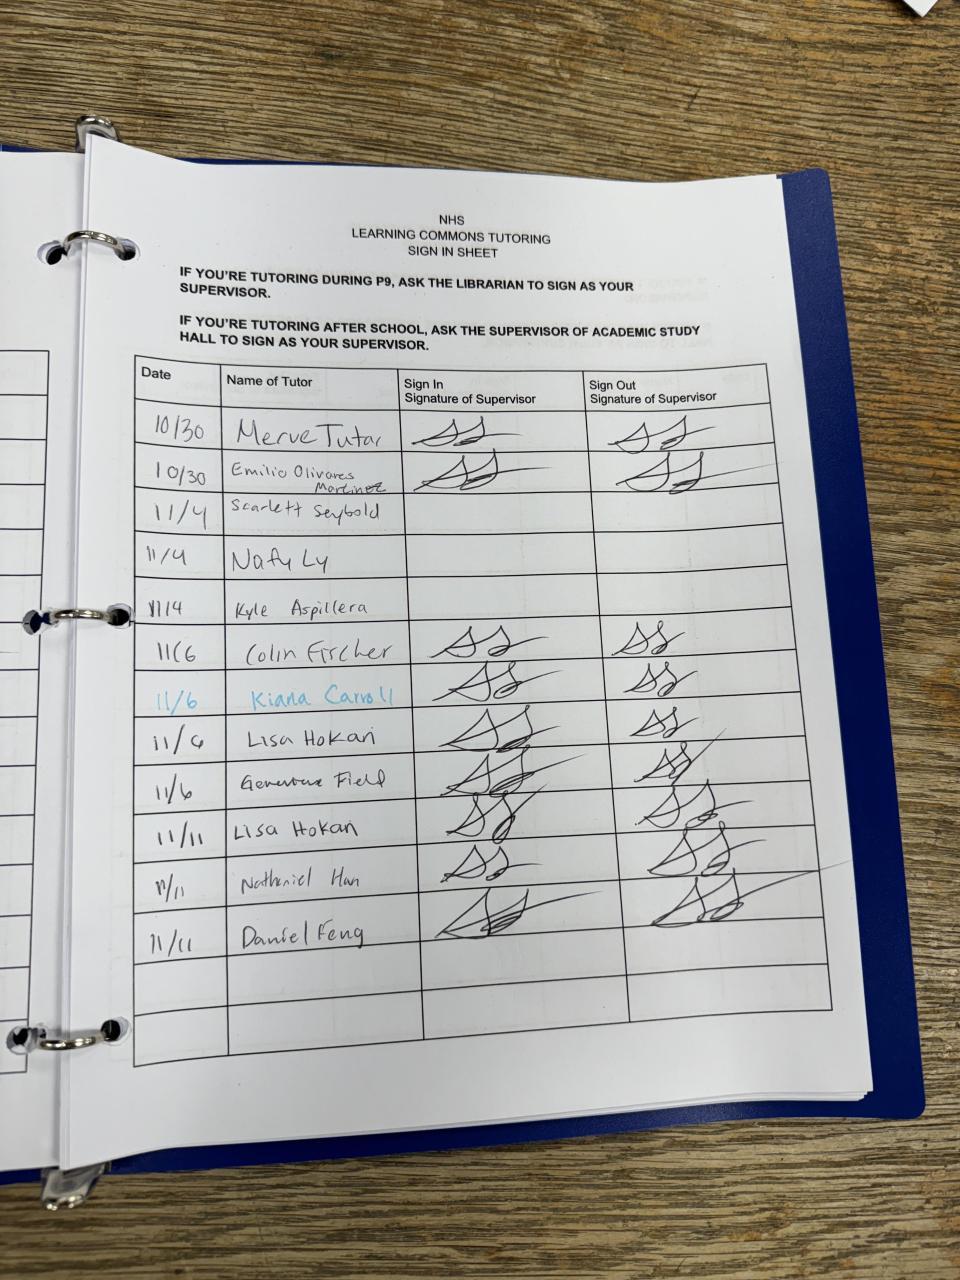 NHS
LEARNING COMMONS TUTORING
SIGN IN SHEET
IF YOU'RE TUTORING DURING P9, ASK THE LIBRARIAN TO SIGN AS YOUR
SUPERVISOR.
IF YOU'RE TUTORING AFTER SCHOOL, ASK THE SUPERVISOR OF ACADEMIC STUDY
HALL TO SIGN AS YOUR SUPERVISOR.
Date Name of Tutor Sign In Sign Out
Signature of Supervisor Signature of Supervisor
10/30 Merve Tutar
10/30 Emilio Olivares
Martinez
11/4 Scarlett Seybold
11/4 Nafy Ly
11/4 Kyle Aspillera
11/6 Colin Fircher
11/6 Kiana Carroll
11/6 Lisa Hokari
11/6 Field
11/11 Lisa Hokari
11/11 Nathaniel Han
11/11 Daniel Feng